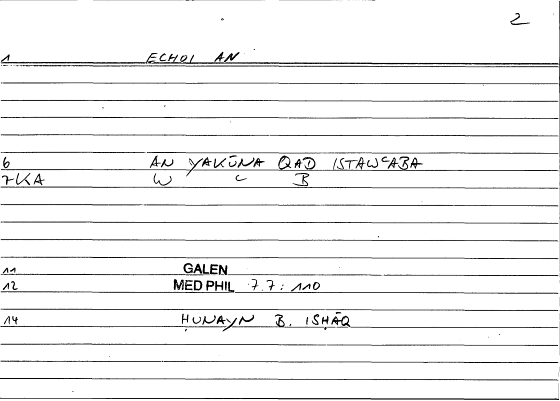 2
1 ECHOI AN
6 AN YAKŪNA QAD ISTAWᶜABA
7KA W ᶜ B
11 GALEN
12 MED PHIL 7.7: 110
14 ḤUNAYN B. ISḤĀQ